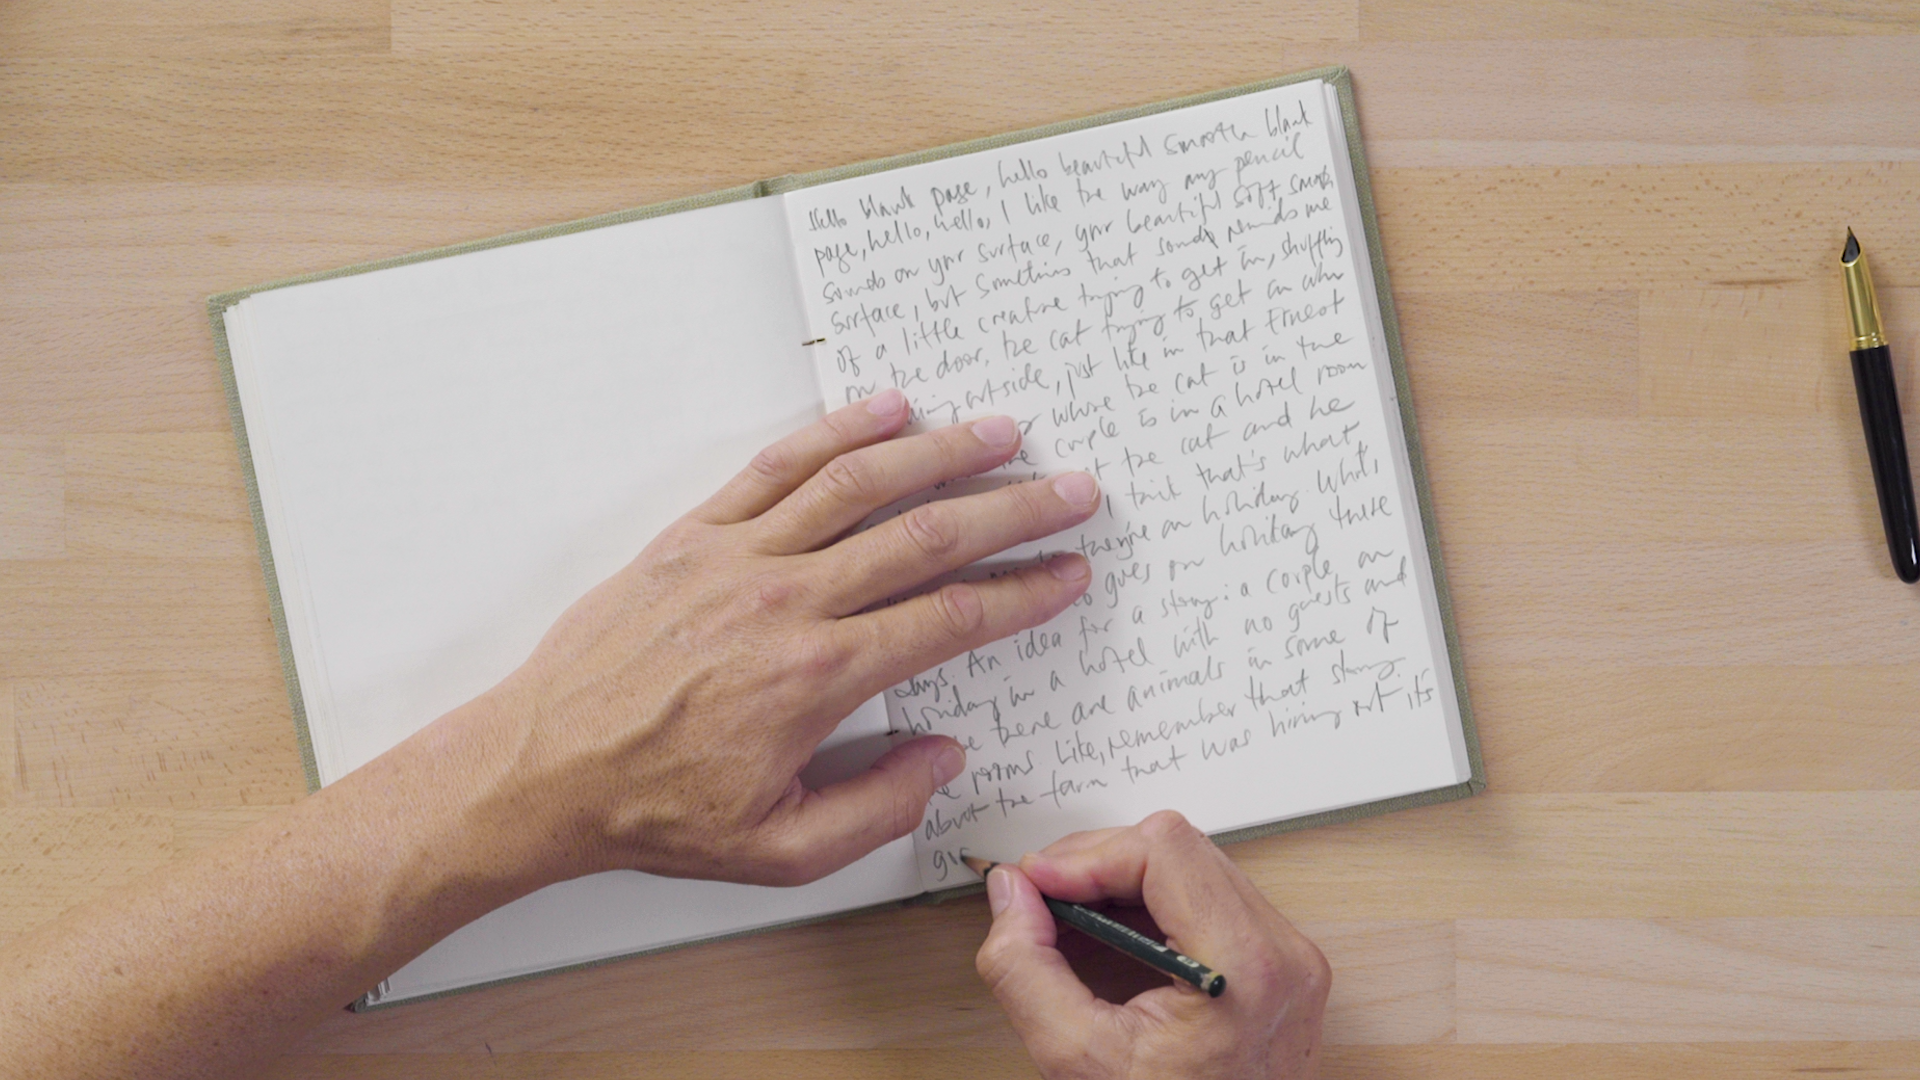 Hello blank page, hello beautiful smooth blank
page, hello, hello, I like the way my pencil
sounds on your surface, your beautiful soft smooth
surface, but sometimes that sound reminds me
of a little creature trying to get in, shuffling
on the door, the cat trying to get in when
outside, just like in that Ernest
where the cat is in the
couple is in a hotel room
the cat and he
I think that's what
they're on holiday. Who,
goes on holiday these
days. An idea for a story: a couple on
holiday in a hotel with no guests and
there are animals in some of
the rooms. Like, remember that story
about the farm that was hiring out its